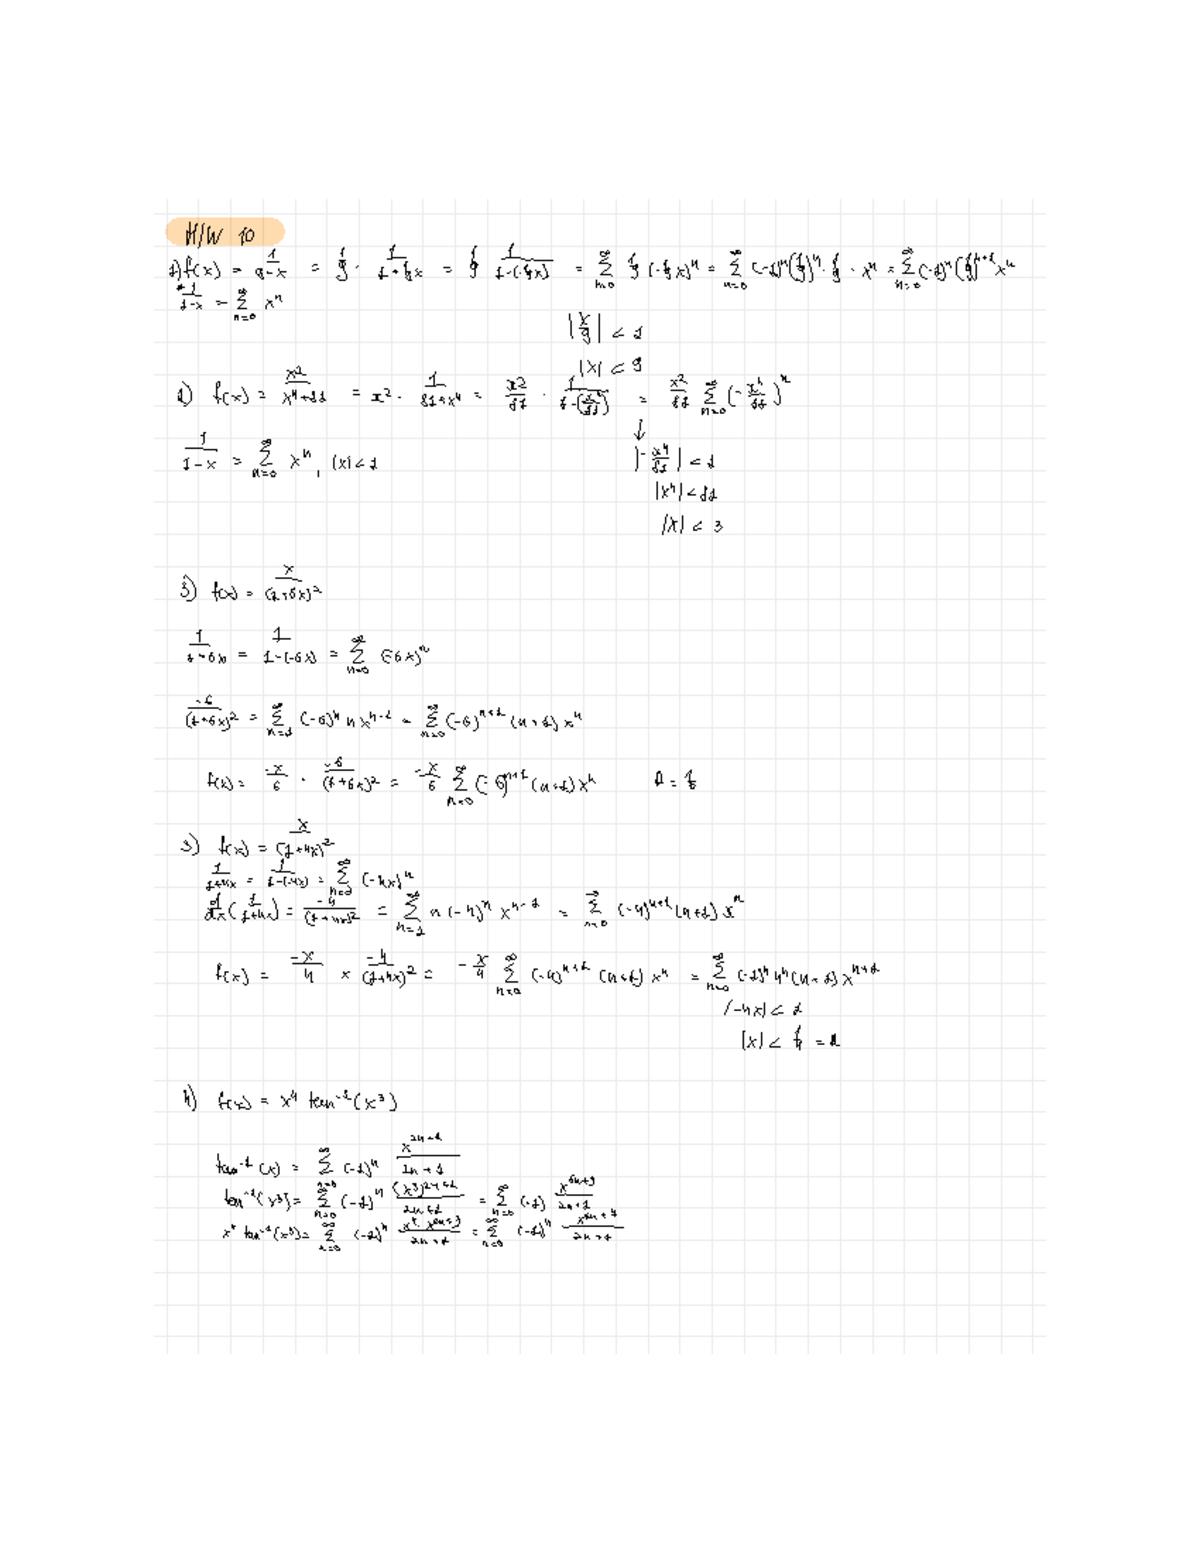 H/W 10
1) f(x) = 1/(9-x) = 1/9 · 1/(1+1/9x) = 1/9 1/(1-(-1/9x)) = ∑_{n=0}^{∞} 1/9 (-1/9x)^n = ∑_{n=0}^{∞} (-1)^n (1/9)^n · 1/9 · x^n = ∑_{n=0}^{∞} (-1)^n (1/9)^{n+1} x^n
* 1/(1-x) = ∑_{n=0}^{∞} x^n
|x/9| < 1
|x| < 9
2) f(x) = x^2/(x^4+81) = x^2 · 1/(81+x^4) = x^2/81 · 1/(1-(x^4/81)) = x^2/81 ∑_{n=0}^{∞} (-x^4/81)^n
↓
1/(1-x) = ∑_{n=0}^{∞} x^n, |x| < 1
|-x^4/81| < 1
|x^4| < 81
|x| < 3
3) f(x) = x/(1+6x)^2
1/(1+6x) = 1/(1-(-6x)) = ∑_{n=0}^{∞} (-6x)^n
-6/(1+6x)^2 = ∑_{n=1}^{∞} (-6)^n n x^{n-1} = ∑_{n=0}^{∞} (-6)^{n+1} (n+1) x^n
f(x) = -x/6 · -6/(1+6x)^2 = -x/6 ∑_{n=0}^{∞} (-6)^{n+1} (n+1) x^n R = 1/6
3) f(x) = x/(1+4x)^2
1/(1+4x) = 1/(1-(-4x)) = ∑_{n=0}^{∞} (-4x)^n
d/dx (1/(1+4x)) = -4/(1+4x)^2 = ∑_{n=1}^{∞} n (-4)^n x^{n-1} = ∑_{n=0}^{∞} (-4)^{n+1} (n+1) x^n
f(x) = -x/4 × -4/(1+4x)^2 = -x/4 ∑_{n=0}^{∞} (-4)^{n+1} (n+1) x^n = ∑_{n=0}^{∞} (-1)^n 4^n (n+1) x^{n+1}
|-4x| < 1
|x| < 1/4 = R
4) f(x) = x^4 tan^{-1}(x^3)
tan^{-1}(x) = ∑_{n=0}^{∞} (-1)^n x^{2n+1}/(2n+1)
tan^{-1}(x^3) = ∑_{n=0}^{∞} (-1)^n (x^3)^{2n+1}/(2n+1) = ∑_{n=0}^{∞} (-1) x^{6n+3}/(2n+1)
x^4 tan^{-1}(x^3) = ∑_{n=0}^{∞} (-1)^n x^4 · x^{6n+3}/(2n+1) = ∑_{n=0}^{∞} (-1)^n x^{6n+7}/(2n+1)